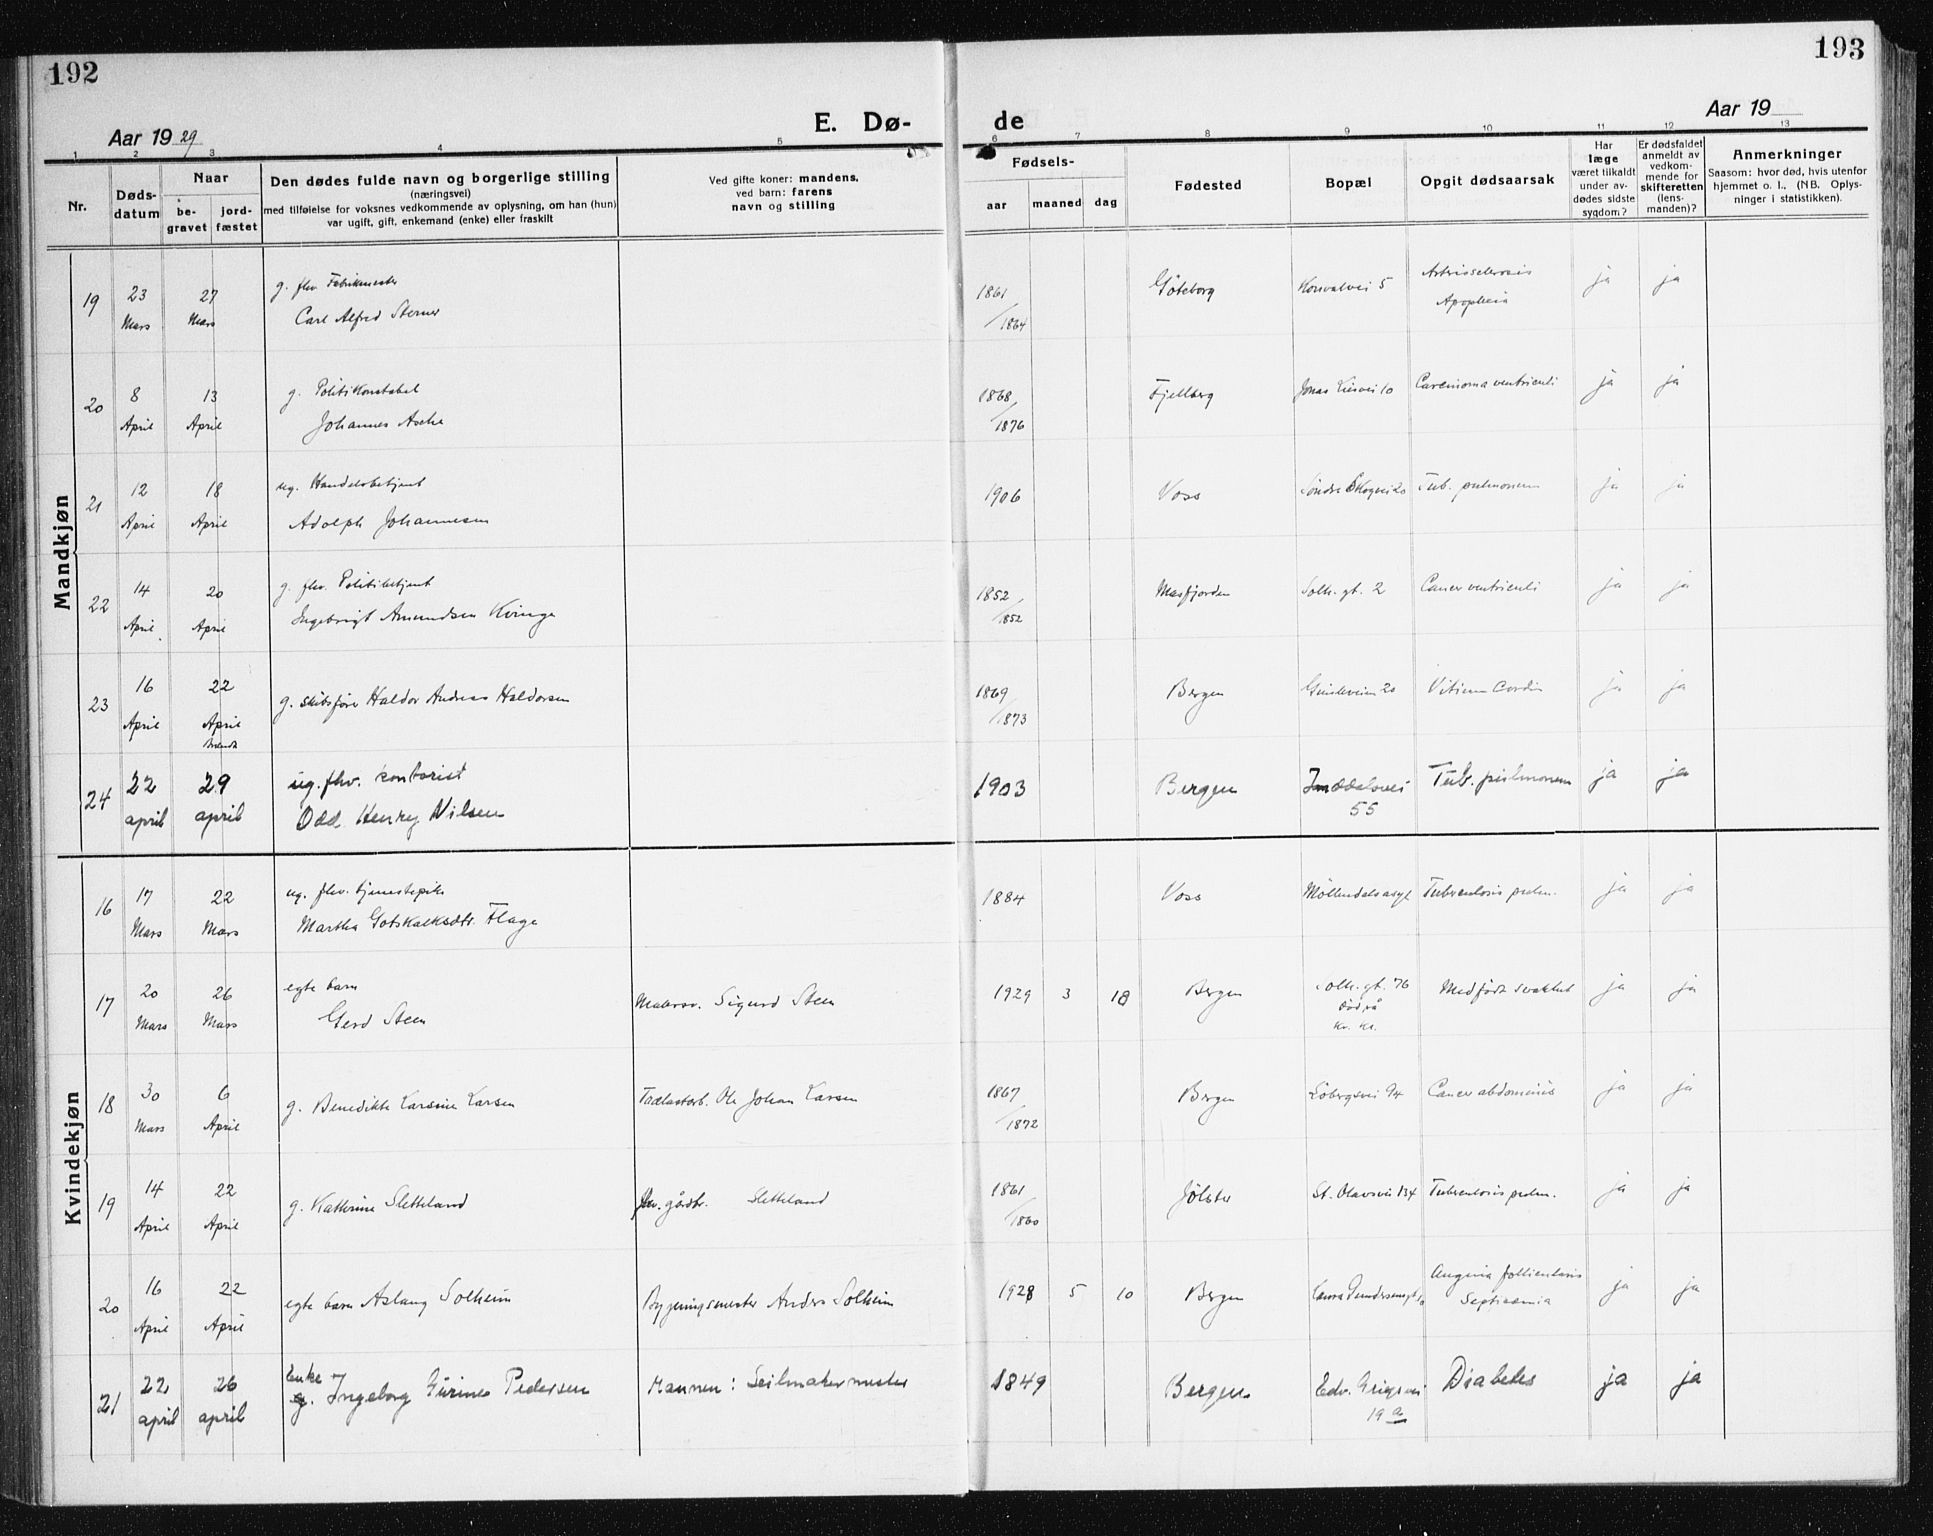 192
193
E. Dø-
de
Aar 1929
Aar 19
1 2 3 4 5 6 7 8 9 10 11 12 13
Nr.
Døds-
datum
Naar
be-
gravet
jord-
fæstet
Den dødes fulde navn og borgerlige stilling
(næringsvei)
med tilføielse for voksnes vedkommende av oplysning, om han (hun)
var ugift, gift, enkemand (enke) eller fraskilt
Ved gifte koner: mandens,
ved barn: farens
navn og stilling
Fødsels-
aar maaned dag
Fødested
Bopæl
Opgit dødsaarsak
Har
læge
været tilkaldt
under av-
dødes sidste
sygdom?
Er dødsfaldet
anmeldt av
vedkom-
mende for
skifteretten
(lens-
manden)?
Anmerkninger
Saasom: hvor død, hvis utenfor
hjemmet o. l., (NB. Oplys-
ninger i statistikken).
Mandkjøn
19 23 Mars 27 Mars
g. fhv. Fabrikmester
Carl Alfred Sterner
1861
/1864
Göteborg
Konvalvei 5
Arteriosclerosis
ja ja
20 8 April 13 April
g. Politikonstabel
Johannes
1868
/1876
Fjellberg
Jonas Liesvei 10
Carcinoma ventriculi
ja ja
21 12 April 18 April
ug. Handelsbetjent
Adolph Johannesen
1906
Voss
Søndre Skogvei 20
Tub. pulmonum
ja ja
22 14 April 20 April
g. fhv. Politibetjent
Ingebrigt Amundsen Kvinge
1852
/1852
Masfjorden
Solh. gt. 2
Cancer ventriculi
ja ja
23 16 April 22 April
brændt
g. skibsfører Haldor Andreas Haldorsen
1869
/1873
Bergen
20
Vitium Cordis
ja ja
24 22 april 29 april
ug. fhv. kontorist
Odd Henry Nilsen
1903
Bergen
55
Tub. pulmonum
ja ja
Kvindekjøn
16 17 Mars 22 Mars
ug. fhv. tjenestepike
Martha Gotskalksdtr. Flage
1884
Voss
Møllendalsasyl
Tuberculosis pulm.
ja ja
17 20 Mars 26 Mars
egte barn
Gerd Steen
Malersv. Sigurd Steen
1929 3 18
Bergen
Solh. gt. 76
død på
kv. kl.
Medfødt svakhet
ja ja
18 30 Mars 6 April
g. Benedikte Larsine Larsen
Ole Johan Larsen
1867
/1872
Bergen
Løbergsvei 94
Cancer abdominis
ja ja
19 14 April 22 April
g. Kathrine Sletteland
fhv. gårdbr. Sletteland
1861
/1860
Jølster
St. Olavsvei 134
Tuberculosis pulm.
ja ja
20 16 April 22 April
egte barn Aslaug Solheim
Bygningsmester Anders Solheim
1928 5 10
Bergen
Laura Gundersensgt. 10
Angina follicularis
Septicæmia
ja ja
21 22 april 26 april
Enke
g. Ingeborg Gurine Pedersen
Mannen: Seilmakermester
1849
Bergen
Edv. Griegsvei
19 a
Diabetes
ja ja